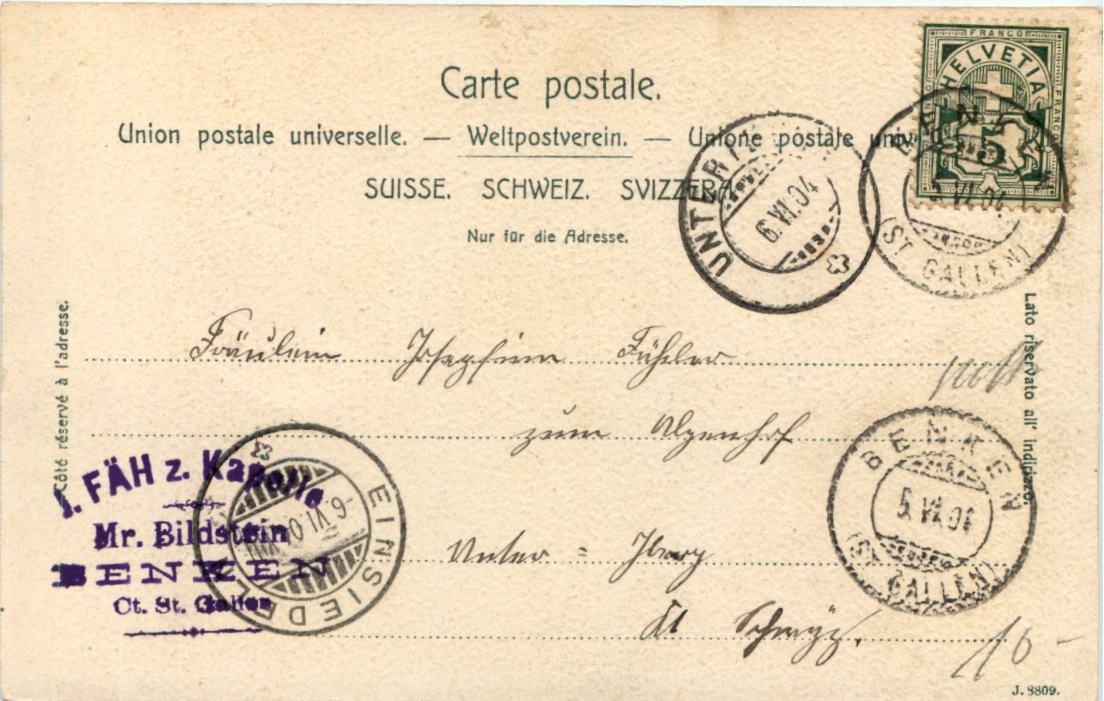 FRANCO
HELVETIA
FRANCO
5
Carte postale.
Union postale universelle. — Weltpostverein. — Unione postale univ
SUISSE. SCHWEIZ. SVIZZERA
Nur für die Adresse.
UNTERI
6.VI.04
BENKEN
5.VI.04
(ST. GALLEN)
Côté réservé à l'adresse.
Lato riservato all' indirizzo.
Fräulein Josefine Fühler
zum Alpenhof
Unter = Iberg
Kt Schwyz.
J. FÄH z. Kapelle
Mr. Bildstein
BENKEN
Ct. St. Gallen
EINSIEDELN
6.VI.0
BENKEN
5.VI.04
(ST. GALLEN)
10 -
J. 8809.